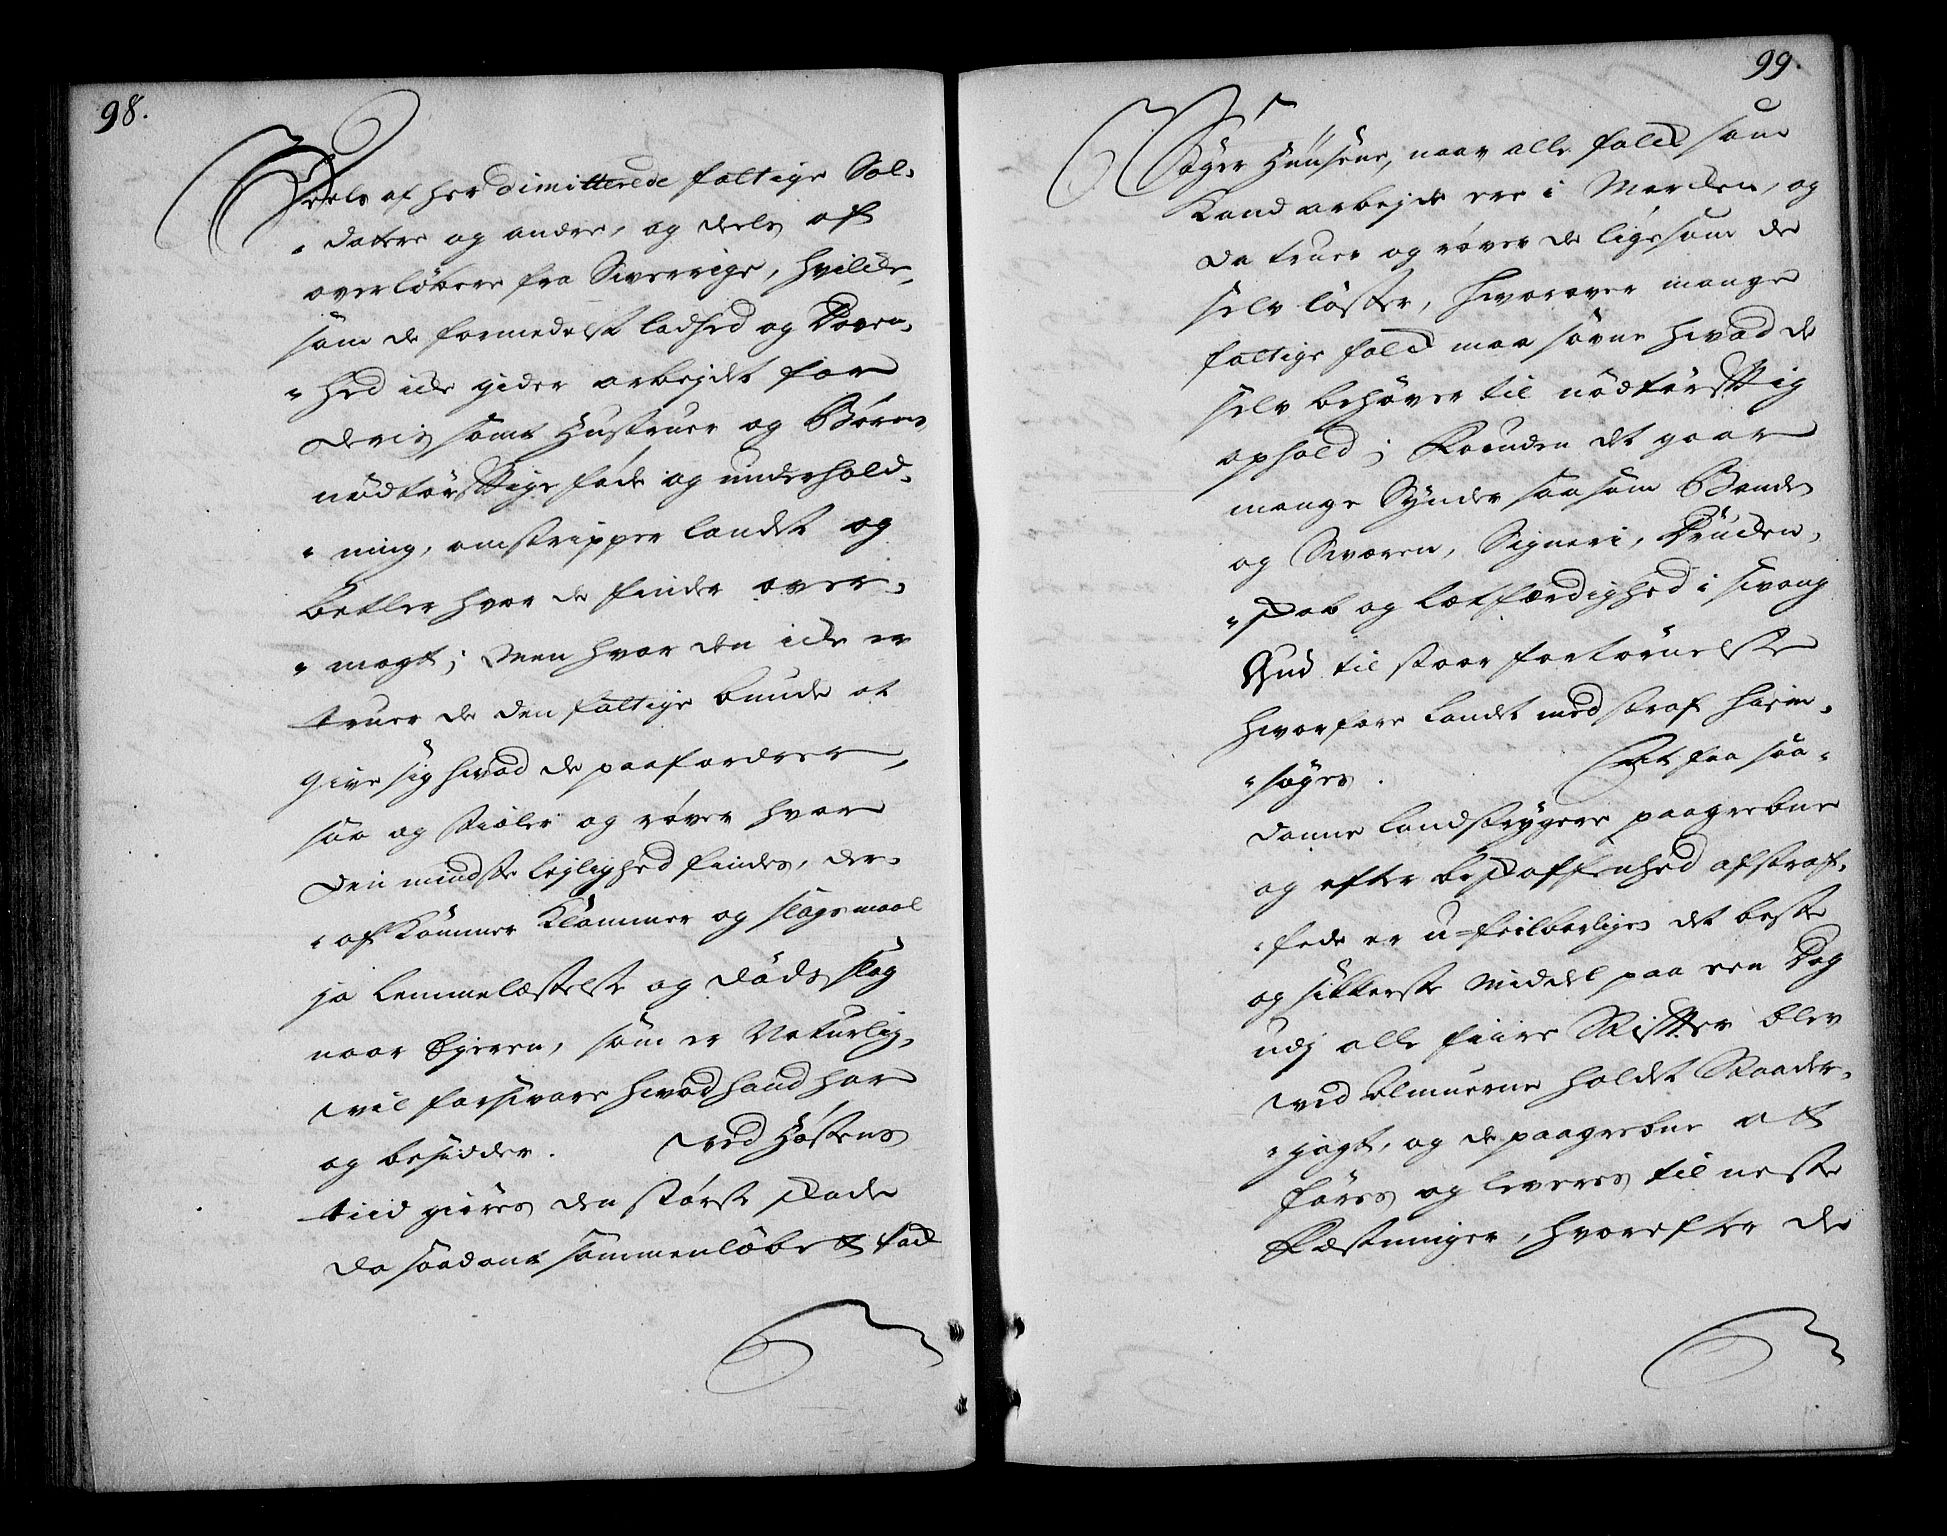 98.
Deels af her dimitterede fattige Sol-
"datere og andre, og deels af
overløbere fra Swerrige, hvilke,
som de formedelst ladhed og Doven-
"hed icke gider arbejdet for
deris samt Hustruer og Børns
nødtørfftige føde og underhold-
"ning, omstripper landet og
betler hvor de finder over-
"magt; Men hvor den icke er
truer de den fattige bunde at
give sig hvad de paafordrer,
saa og stieler og røver hvor
den mindste lejlighed findes, der-
"af kommer Klammer og slagsmaal
ja Lemmelæstelse og dødsslag
naar Ejeren, som er Naturlig,
vil forsvare hvad hand har
og besidder. Ved Høstens
tiid giøres den største skade
da saadant sammenløbett Pack
99.
Søger Huusene, naar alle folck som
kand arbejde ere i Marcken, og
da truer og røver de ligesom de
selv løster, hvorover mange
fattige folck maa savne hvad de
selv behøver til nødtørfftig
ophold; Foruden det gaar
mange Synder saasom Bande
og Sværen, Signeri, Drucken-
"skab og Letfærdighed i svang
Gud til stoor fortørnelse
hvorfore Landet med straf hiem-
"søges. At faa saa-
danne landstrygere paagrebne
og efter beskaffenhed afstraf-
"fede er u-feilbarligen det beste
og sikkerste Middel paa een Dag
udj alle fiire Stiffter blev
ved Almuerne holdet Klapper-
"jagt, og de paagrebne att
føres og leveres til neste
Fæstninger, hvorefter de